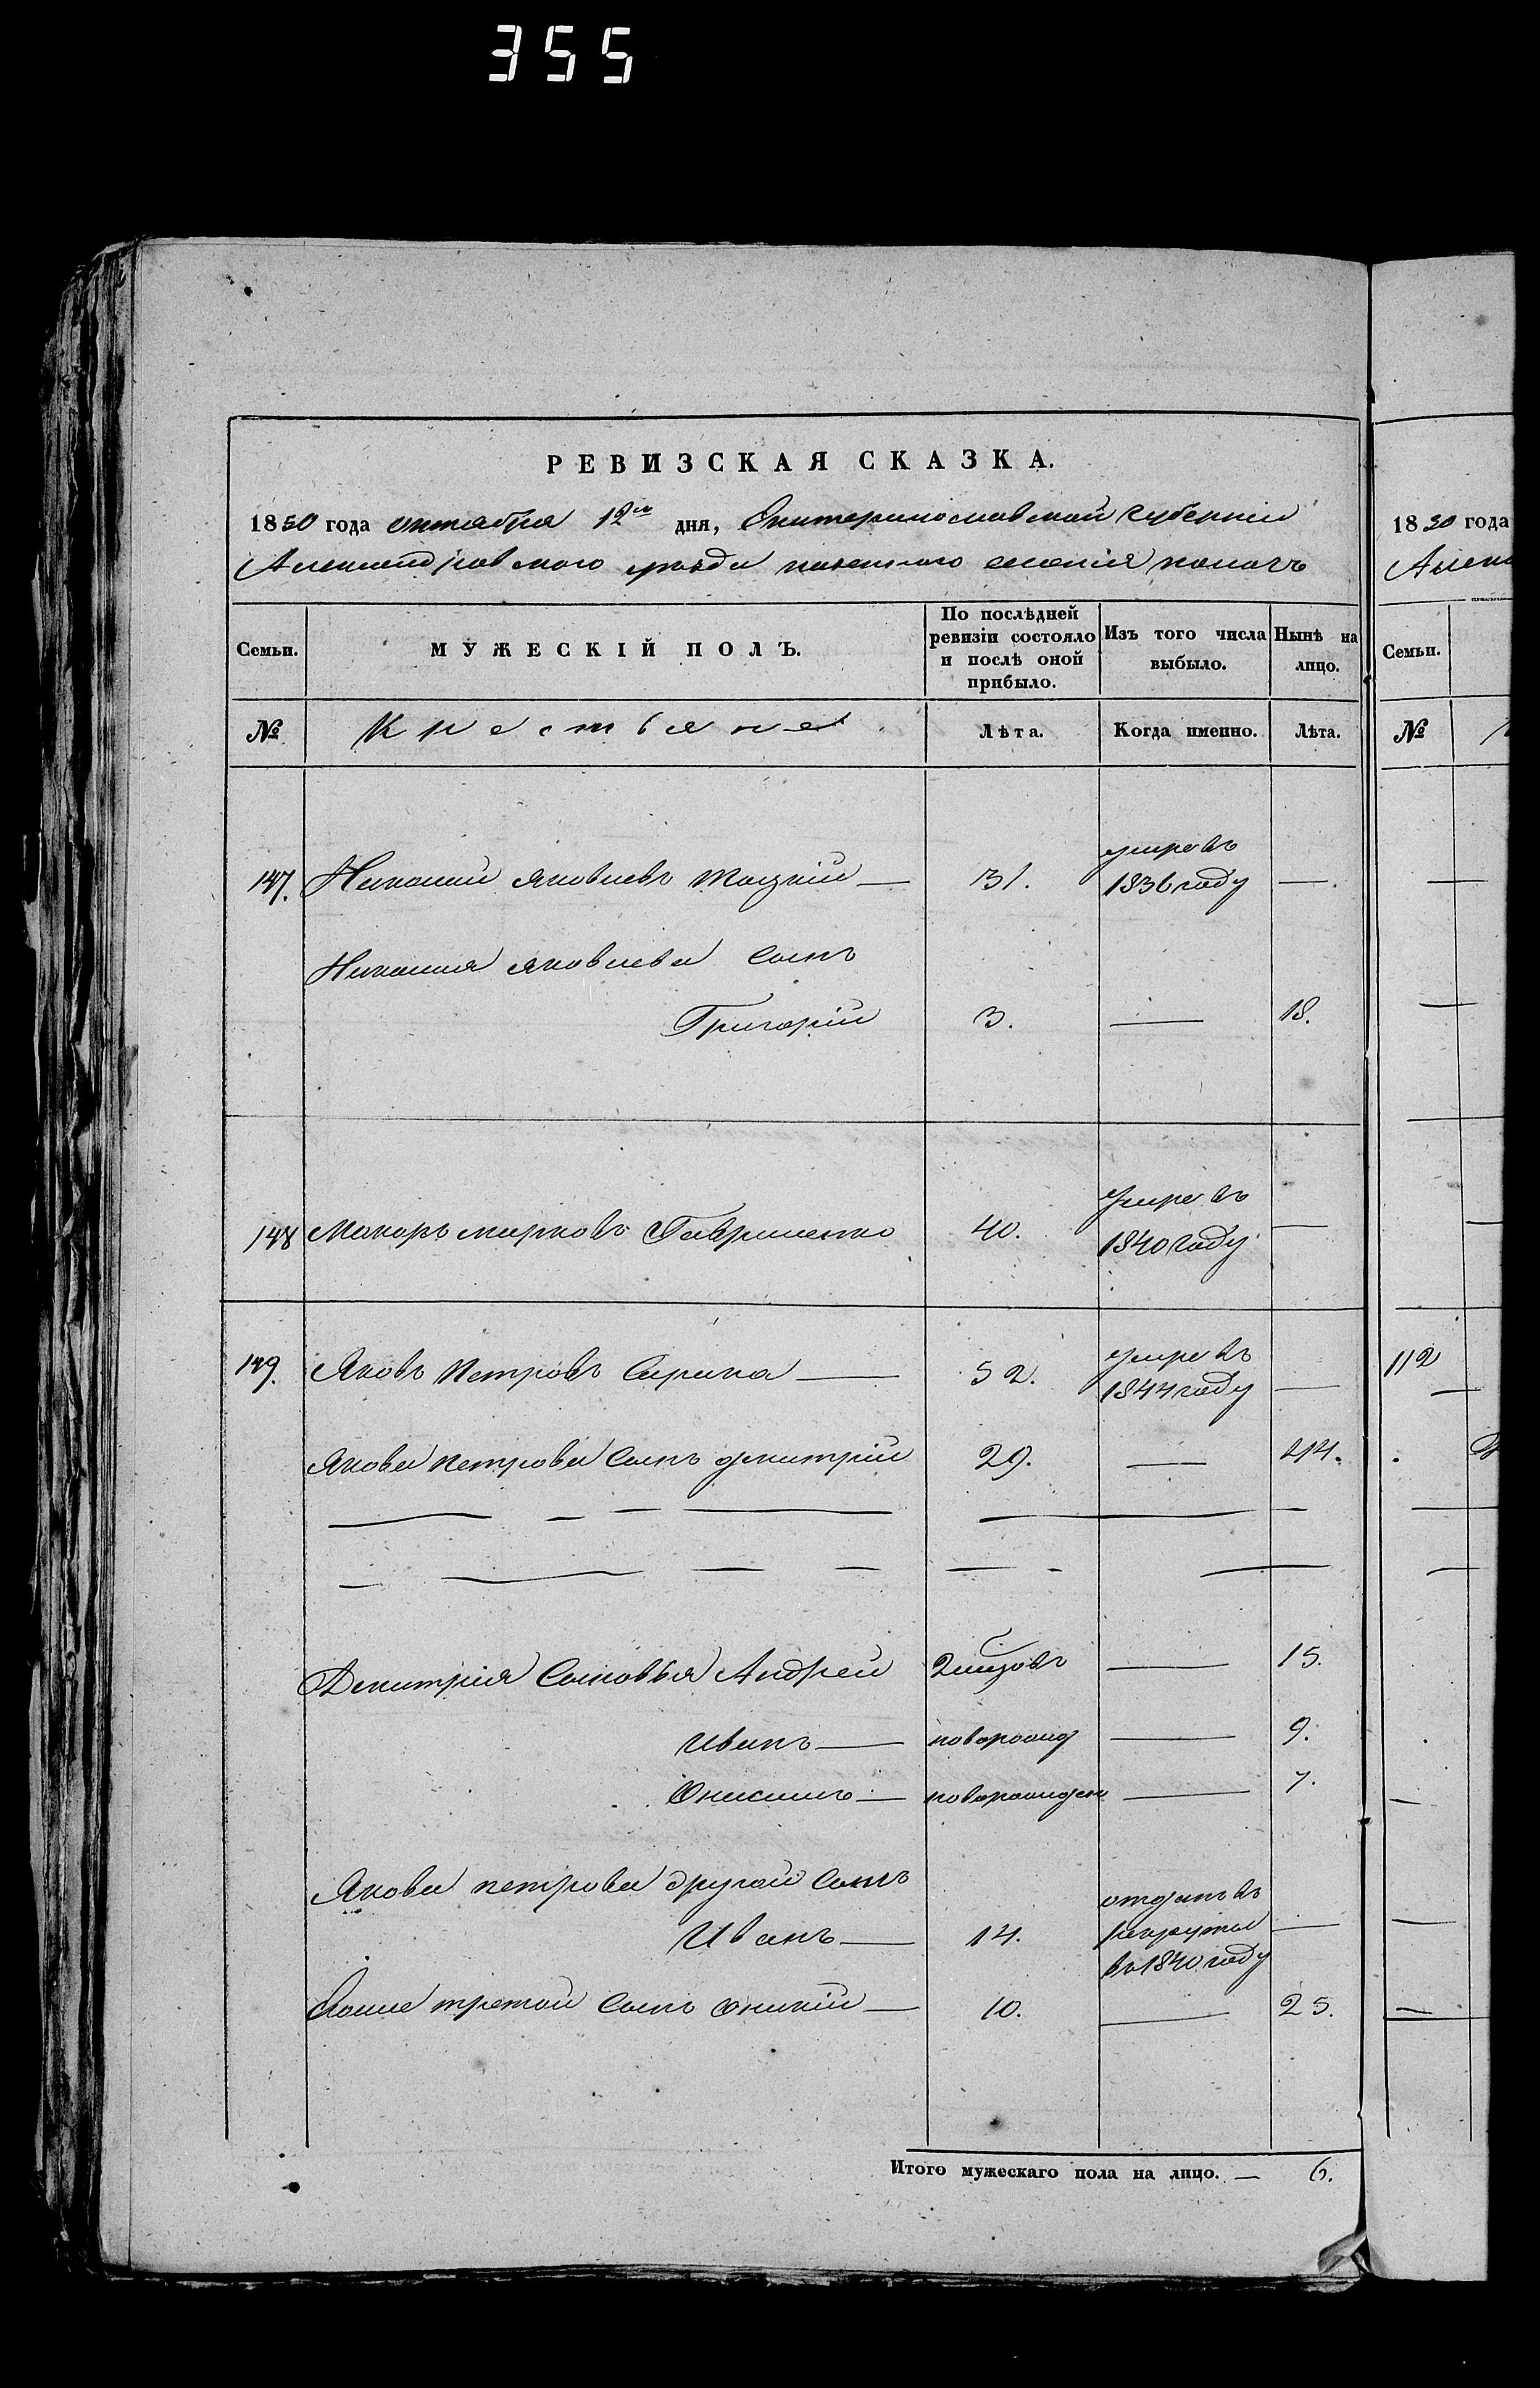 355
РЕВИЗСКАЯ СКАЗКА.
1850 года октября 12го дня, Екатеринославской губернии
Александровского уезда казенного селения Коногъ
Семьи. МУЖЕСКІЙ ПОЛЪ. По послѣдней ревизіи состояло и послѣ оной прибыло. Изъ того числа выбыло. Нынѣ на лицо.
№ Крестьяне Лѣта. Когда именно. Лѣта.
147. Николай Яковлевъ 31. умре въ 1836 году —.
Николая Яковлева сынъ
Григорій 3. — 18.
148 Макаръ Марковъ Гавришенко 40. умре въ 1840 году —
149. Яковъ Петровъ Сирика — 52. умре въ 1844 году —
Якова Петрова сынъ Дмитрій 29. — 44.
Дмитрія сыновья Андрей — 15.
Иванъ — новорожд — 9.
Онисимъ — новорожден — 7.
Якова Петрова другой сынъ
Иванъ — 14. отданъ въ рекруты въ 1840 году —
Его же третой сынъ — 10. — 25.
Итого мужескаго пола на лицо. — 6.
1850 года
Алек
Семьи.
№
112